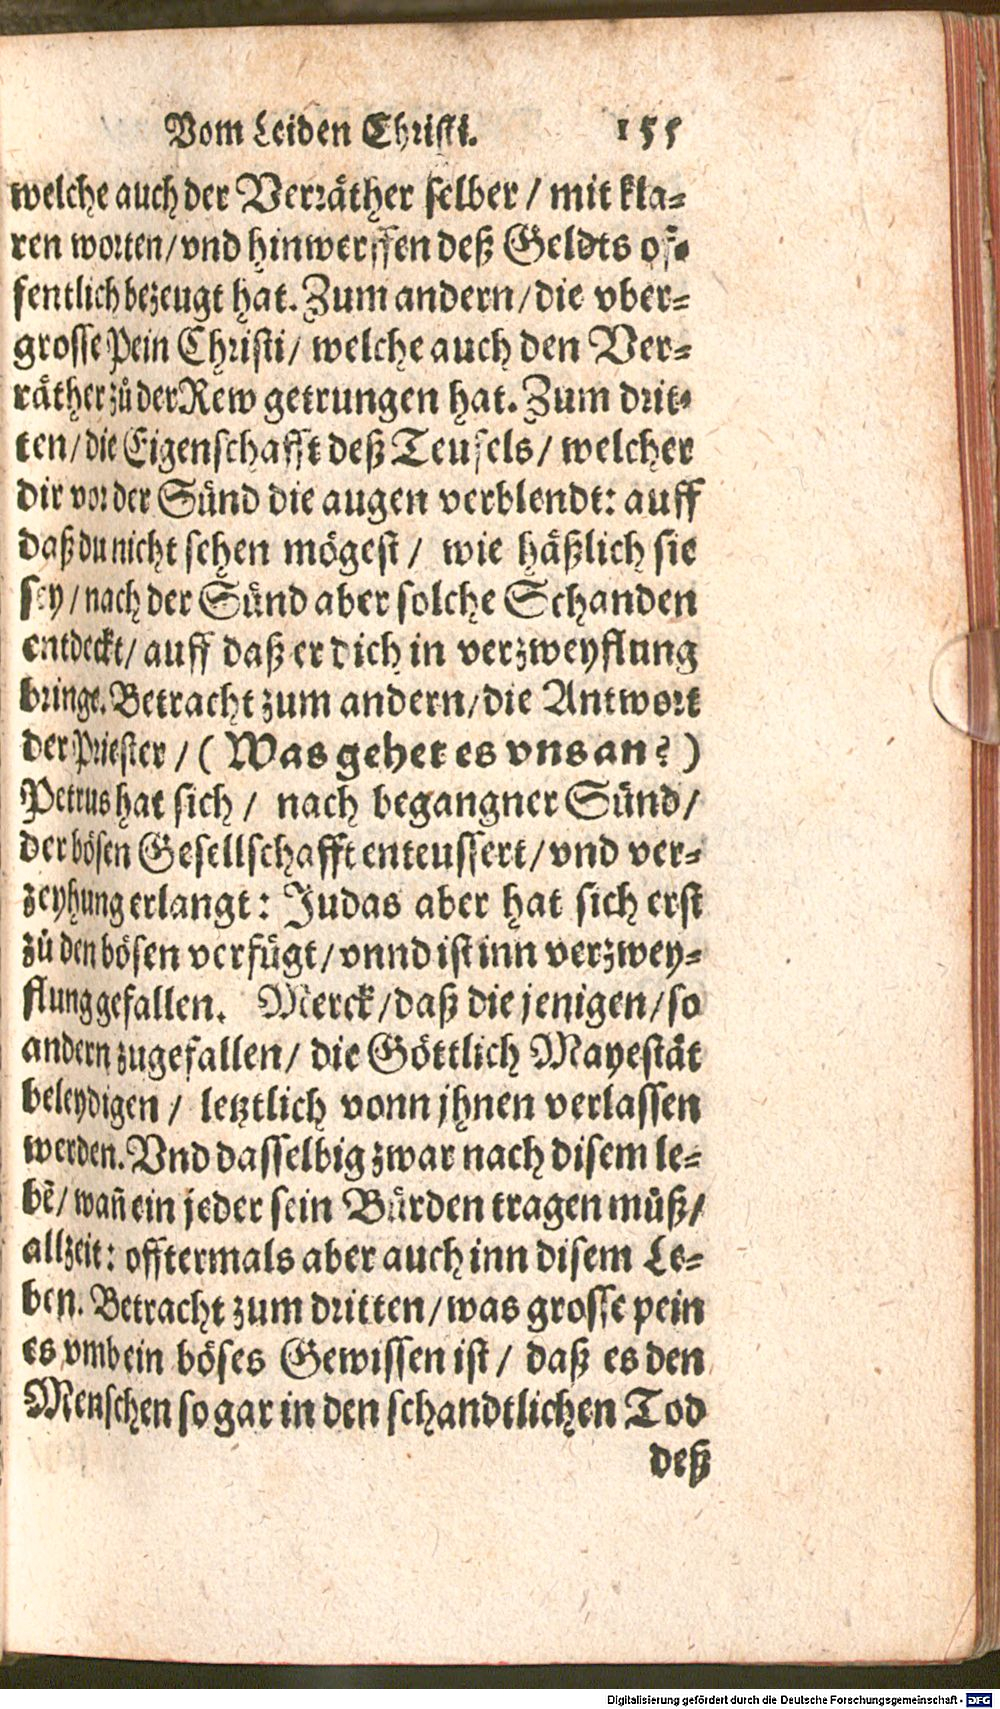 Vom Leiden Christi. 155
welche auch der Verräther selber / mit kla-
ren worten / vnd hinwerffen deß Geldts of-
fentlich bezeugt hat. Zum andern / die vber-
grosse Pein Christi / welche auch den Ver-
räther zů der Rew getrungen hat. Zum drit-
ten / die Eigenschafft deß Teufels / welcher
dir vor der Sünd die augen verblendt: auff
daß du nicht sehen mögest / wie häßlich sie
sey / nach der Sünd aber solche Schanden
entdeckt / auff daß er dich in verzweyflung
bringe. Betracht zum andern / die Antwort
der Priester / ( Was gehet es vns an? )
Petrus hat sich / nach begangner Sünd /
der bösen Gesellschafft enteussert / vnd ver-
zeyhung erlangt: Judas aber hat sich erst
zů den bösen verfügt / vnnd ist inn verzwey-
flung gefallen. Merck / daß die jenigen / so
andern zugefallen / die Göttlich Mayestät
beleydigen / letztlich vonn jhnen verlassen
werden. Vnd dasselbig zwar nach disem le-
bẽ / wañ ein jeder sein Bürden tragen můß /
allzeit: offtermals aber auch inn disem Le-
ben. Betracht zum dritten / was grosse pein
es vmb ein böses Gewissen ist / daß es den
Menschen so gar in den schandtlichen Tod
deß
Digitalisierung gefördert durch die Deutsche Forschungsgemeinschaft - DFG